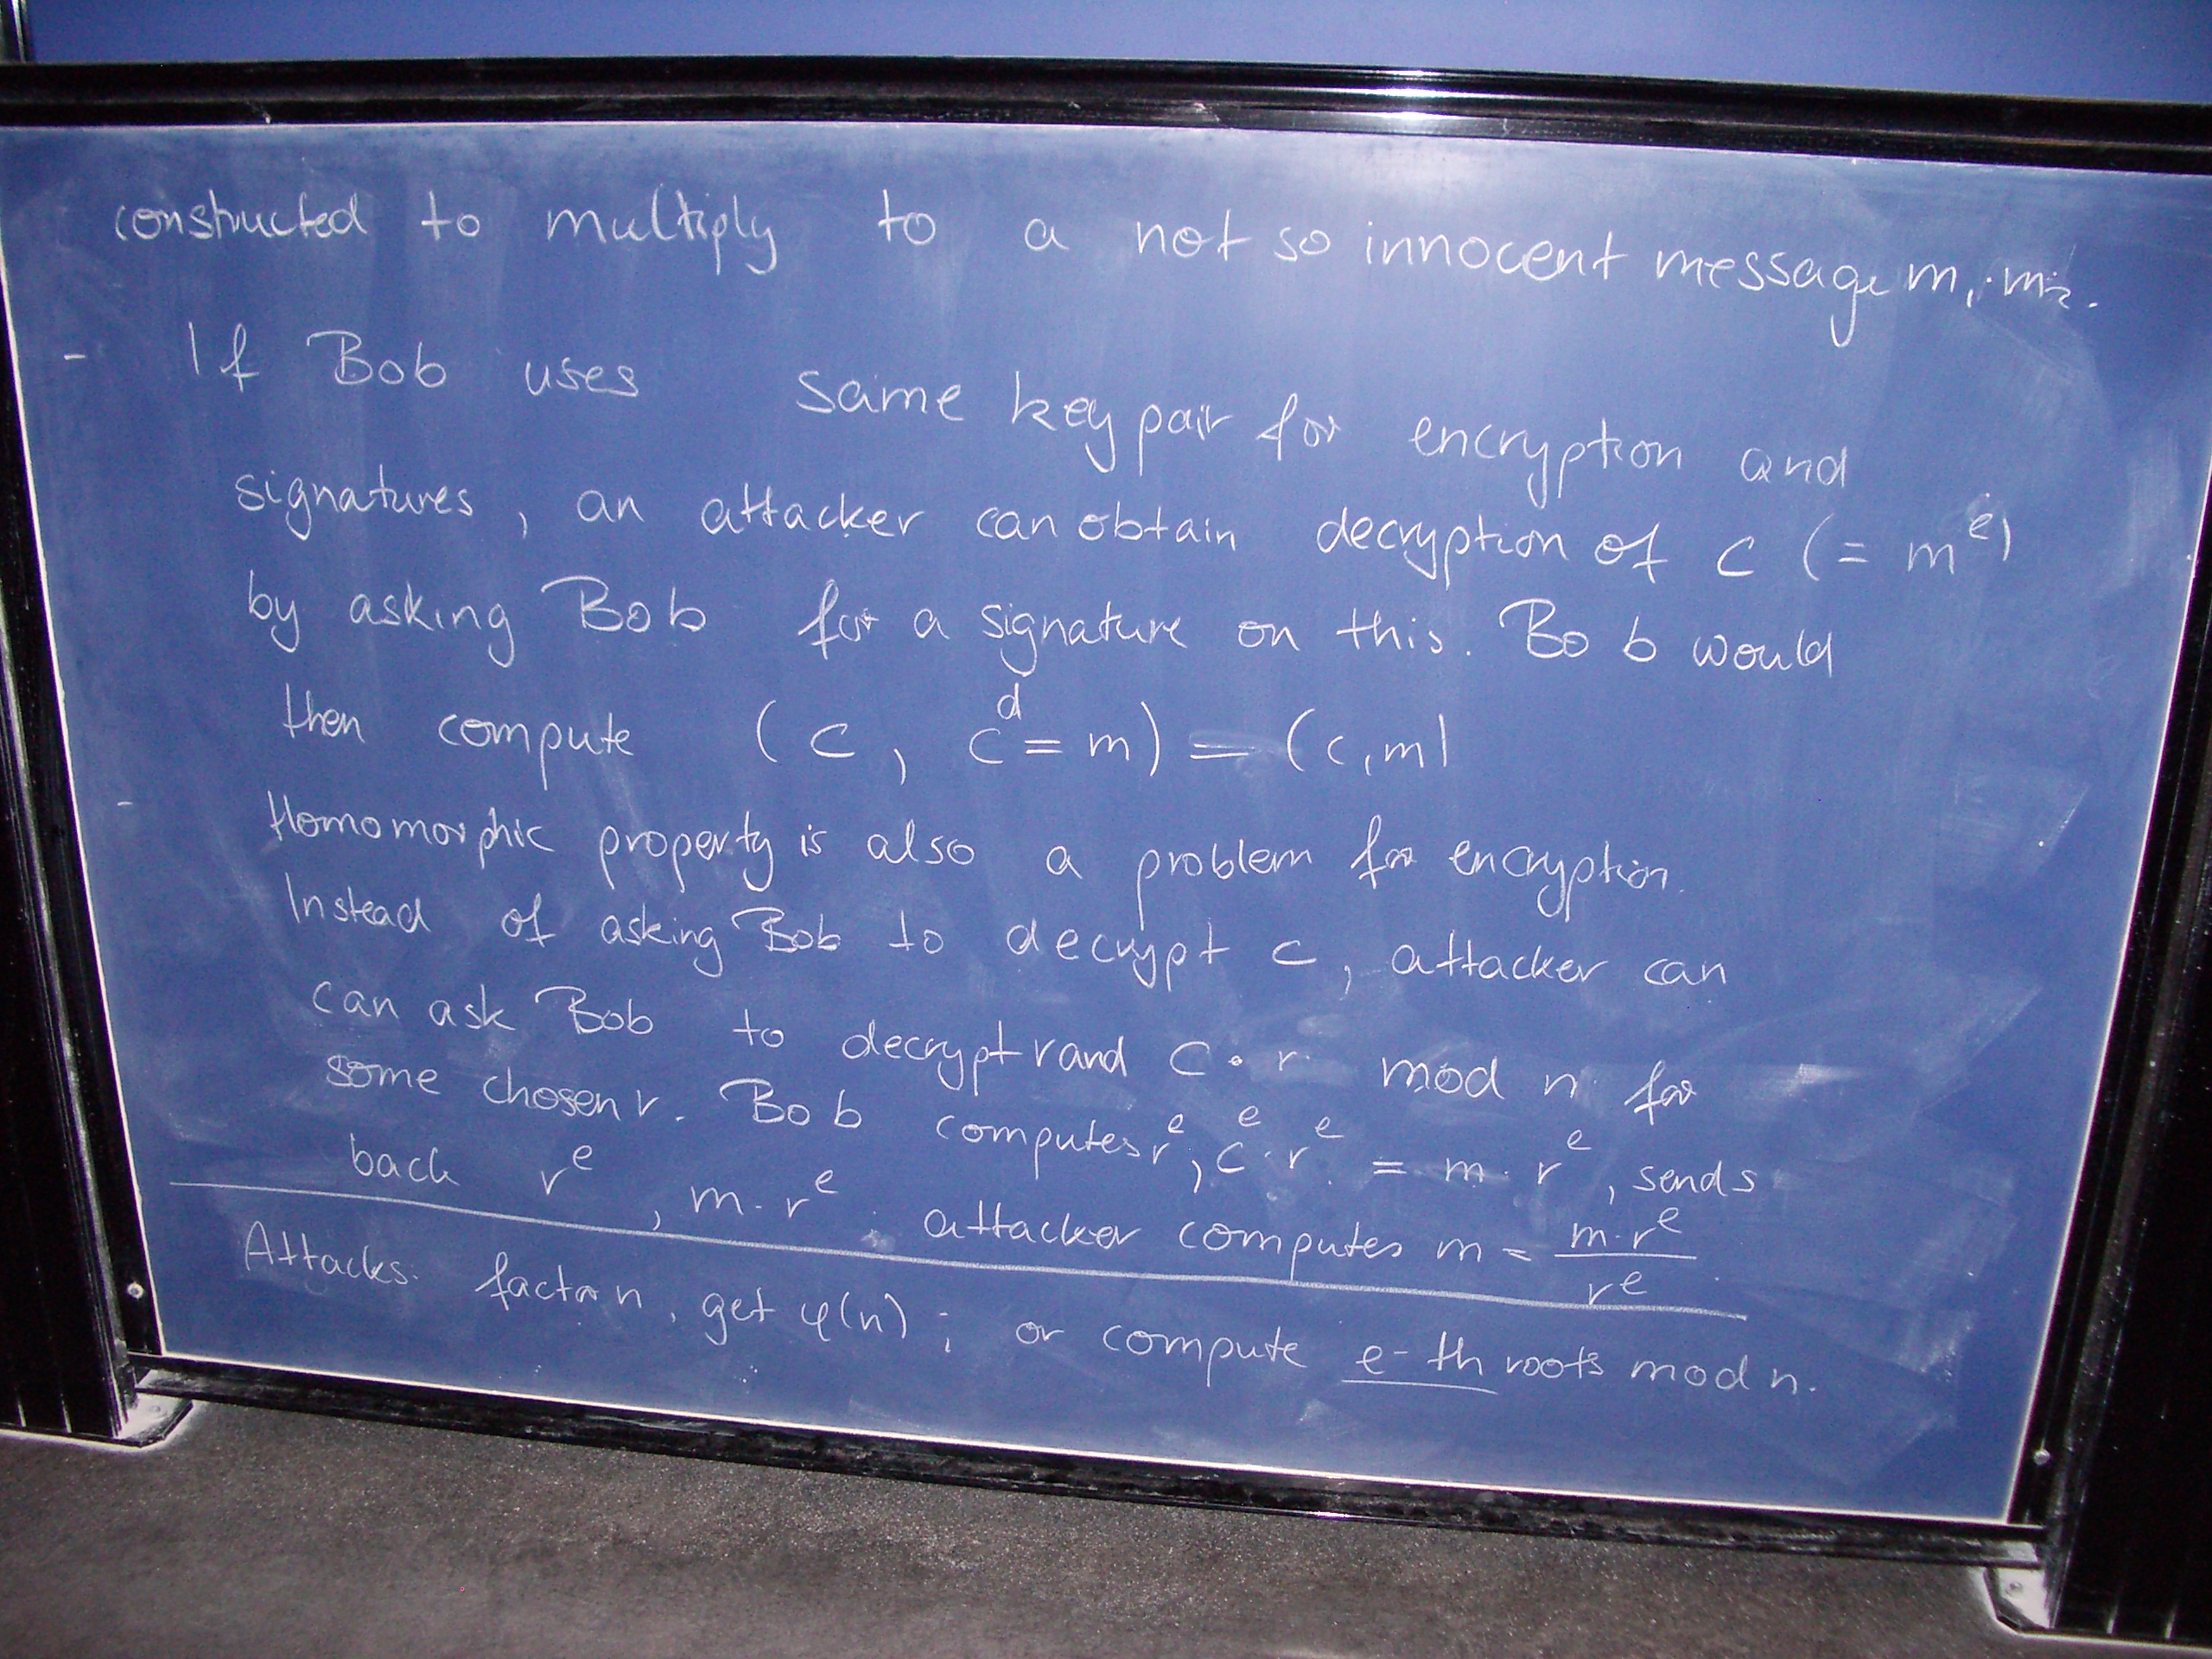 constructed to multiply to a not so innocent message m₁·m₂.
- If Bob uses same key pair for encryption and
signatures, an attacker can obtain decryption of c (= mᵉ)
by asking Bob for a signature on this. Bob would
then compute (c, cᵈ = m) = (c, m)
- Homomorphic property is also a problem for encryption.
Instead of asking Bob to decrypt c, attacker can
can ask Bob to decrypt r and c · r mod n for
some chosen r. Bob computes rᵉ, cᵉ · rᵉ = m · rᵉ, sends
back rᵉ, m · rᵉ. attacker computes m = m·rᵉ / rᵉ
Attacks: factor n, get φ(n); or compute e-th roots mod n.